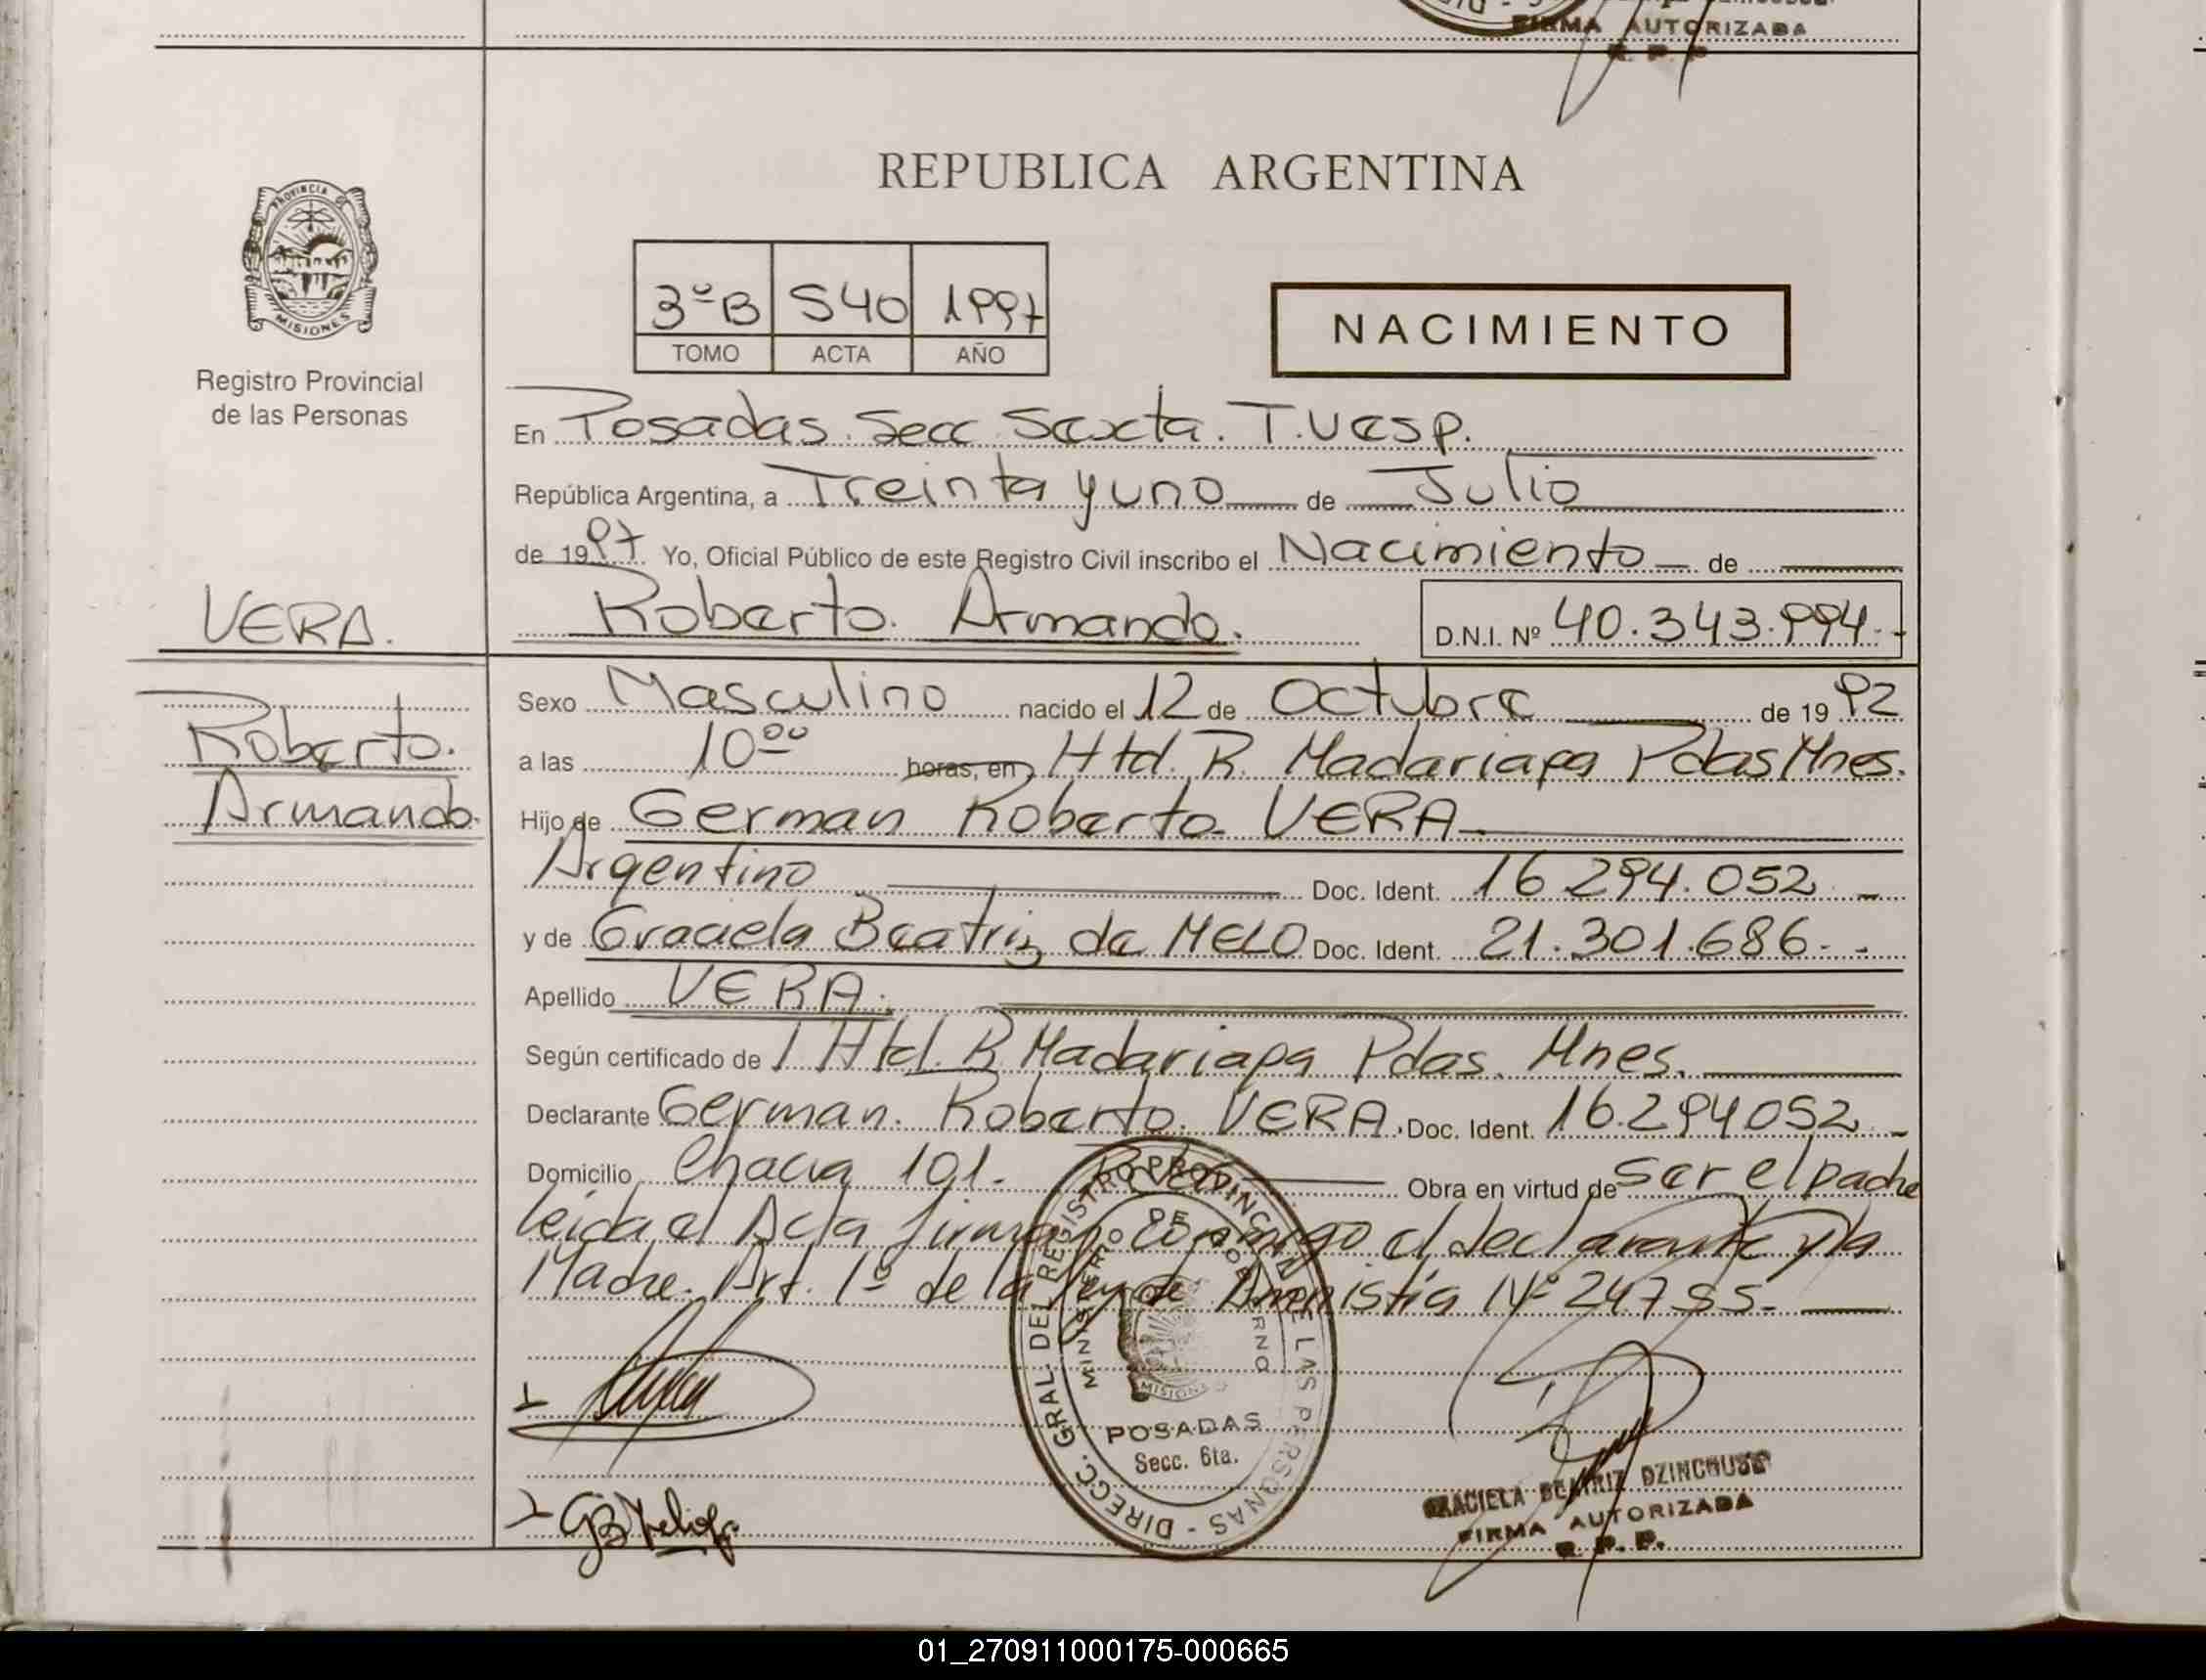 FIRMA AUTORIZADA
R. P. P.
PROVINCIA DE
MISIONES
Registro Provincial
de las Personas
REPUBLICA ARGENTINA
3º B S40 1997
TOMO ACTA AÑO
NACIMIENTO
En Posadas. Secc. Sexta. T. Vesp.
República Argentina, a Treinta y uno de Julio
de 1997 Yo, Oficial Público de este Registro Civil inscribo el Nacimiento de
VERA.
Roberto Armando. D.N.I. Nº 40.343.994.-
Roberto.
Armando.
Sexo Masculino nacido el 12 de Octubre de 1992
a las 10ºº horas, en Htd. R. Madariaga Pdas Mnes.
Hijo de German Roberto VERA
Argentino Doc. Ident. 16.294.052.-
y de Graciela Beatriz de MELO Doc. Ident. 21.301.686.-
Apellido VERA.
Según certificado de l Htd. R. Madariaga Pdas. Mnes.
Declarante German. Roberto. VERA. Doc. Ident. 16.294.052.-
Domicilio Chacra 101. Pdas. Obra en virtud de ser el padre
leida el Acta firman conmigo el declarante y la
Madre. Art. 1º de la Ley de Amnistía Nº 24755.
DIRECC. GRAL. DEL REGISTRO PROVINCIAL DE LAS PERSONAS
MINISTERIO DE GOBIERNO
MISIONES
POSADAS
Secc. 6ta.
GRACIELA BEATRIZ DZINCHUSZ
FIRMA AUTORIZADA
R. P. P.
01_270911000175-000665